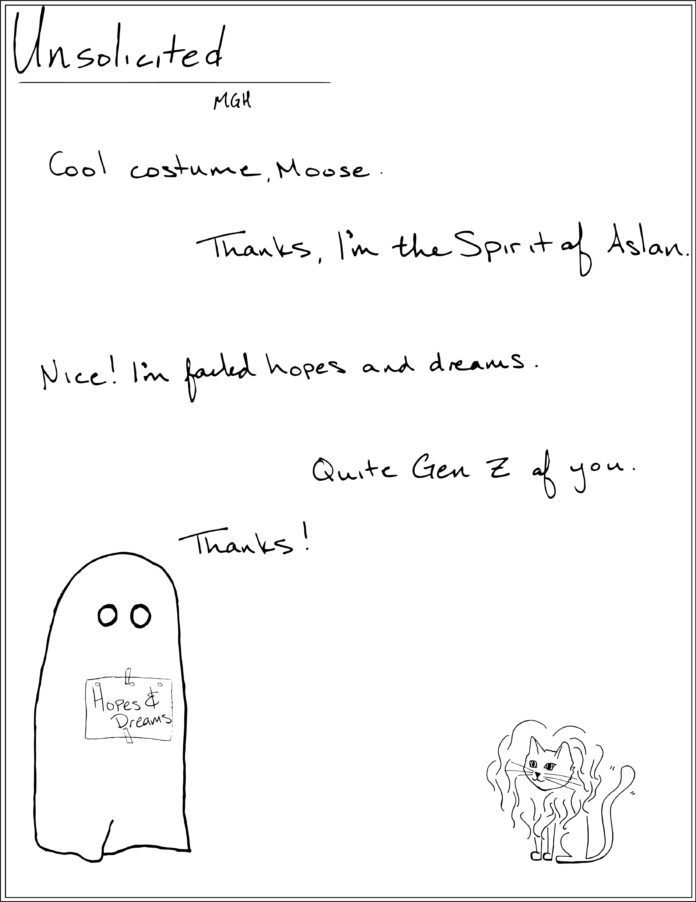 Unsolicited
MGH
Cool costume, Moose.
Thanks, I'm the Spirit of Aslan.
Nice! I'm failed hopes and dreams.
Quite Gen Z of you.
Thanks!
Hopes &
Dreams